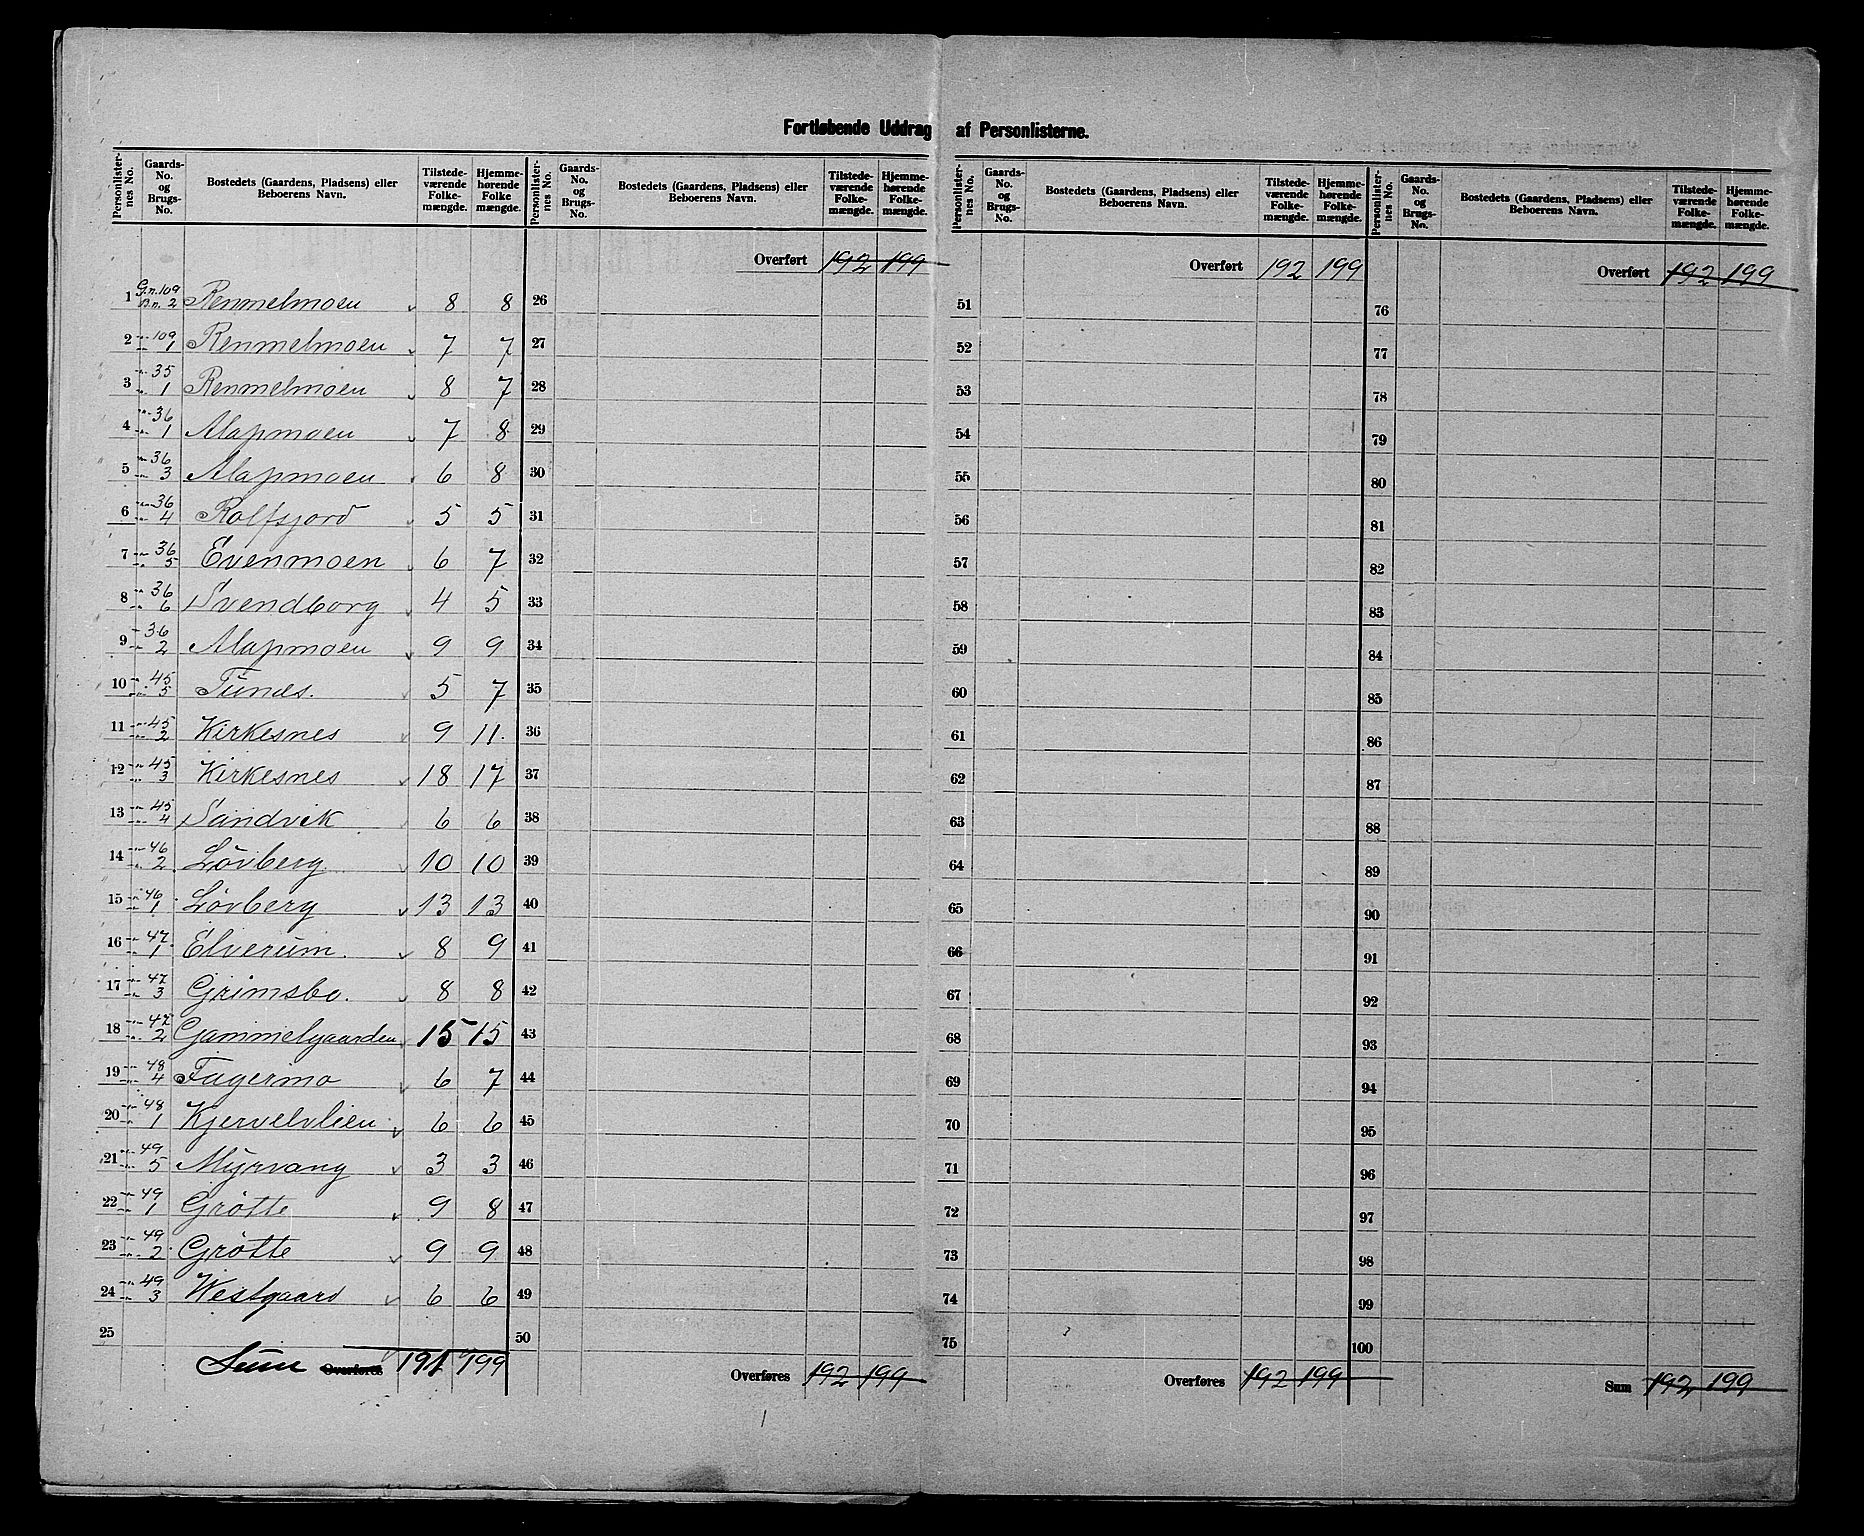 Fortløbende Uddrag af Personlisterne.
Personlister-nes No. Gaards-No. og Brugs-No. Bostedets (Gaardens, Pladsens) eller Beboerens Navn. Tilstede-værende Folke-mængde. Hjemme-hørende Folke mængde. Personlister-nes No. Gaards-No. og Brugs-No. Bostedets (Gaardens, Pladsens) eller Beboerens Navn. Tilstede-værende Folke-mængde. Hjemme-hørende Folke-mængde. Personlister-nes No. Gaards-No. og Brugs-No. Bostedets (Gaardens, Pladsens) eller Beboerens Navn. Tilstede-værende Folke-mængde. Hjemme-hørende Folke-mængde. Personlister-nes No. Gaards-No. og Brugs-No. Bostedets (Gaardens, Pladsens) eller Beboerens Navn. Tilstede-værende Folke-mængde. Hjemme-hørende Folke-mængde.
Overført 192 199 Overført 192 199 Overført 192 199
1 G.n. 109 B.n. 2 Remmelmoen 8 8 26 51 76
2 " 109 " 1 Remmelmoen 7 7 27 52 77
3 " 35 " 1 Remmelmoen 8 7 28 53 78
4 " 36 " 1 Alapmoen 7 8 29 54 79
5 " 36 " 3 Alapmoen 6 8 30 55 80
6 " 36 " 4 Rolfsjord 5 5 31 56 81
7 " 36 " 5 Evenmoen 6 7 32 57 82
8 " 36 " 6 Svendborg 4 5 33 58 83
9 " 36 " 2 Alapmoen 9 9 34 59 84
10 " 45 " 5 Tunæs. 5 7 35 60 85
11 " 45 " 2 Kirkesnes 9 11. 36 61 86
12 " 45 " 3 Kirkesnes 18 17 37 62 87
13 " 45 " 4 Sandvik 6 6 38 63 88
14 " 46 " 2. Løvberg. 10 10 39 64 89
15 " 46 " 1 Løvberg 13 13 40 65 90
16 " 47. " 1 Elverum. 8 9 41 66 91
17 " 47 " 3 Grimsbo. 8 8 42 67 92
18 " 47 " 2 Gammelgaarden 15 15 43 68 93
19 " 48 " 4 Fagermo 6 7 44 69 94
20 " 48 " 1 Kjervelvlien 6 6 45 70 95
21 " 49 " 5 Myrvang 3 3 46 71 96
22 " 49 " 1 Grøtte 9 8 47 72 97
23 " 49 " 2. Grøtte 9 9 48 73 98
24 " 49 " 3 Westgaard 6 6 49 74 99
25 50 75 100
Sum Overføres 191 199 Overføres 192 199 Overføres 192 199 Sum 192 199